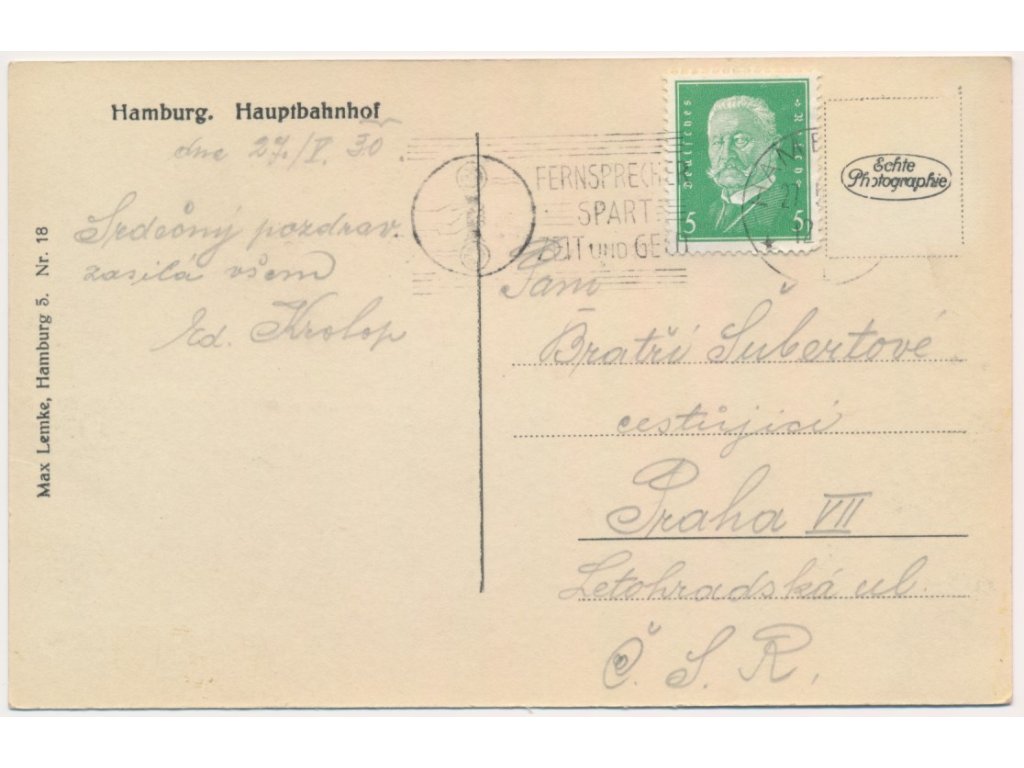 Hamburg. Hauptbahnhof
dne 27./V. 30
Srdečný pozdrav.
zasílá všem
Ed. Krolop
Max Lemke, Hamburg 5. Nr. 18
FERNSPRECHER
SPART
ZEIT UND GELD
Deutsches
5 5
27
Echte
Photographie
Pam
Bratří Šubertové
cestující
Praha VII
Letohradská ul.
Č. S. R.